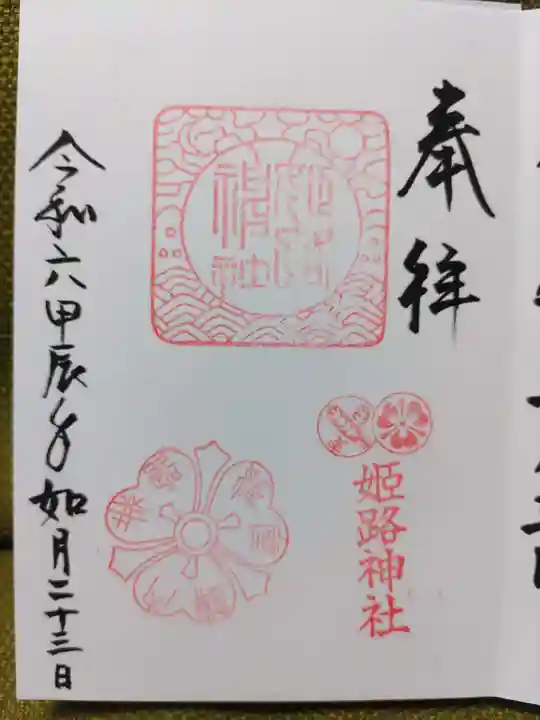 奉拝
姫路神社
姫路
神社
令和六甲辰年如月二十三日